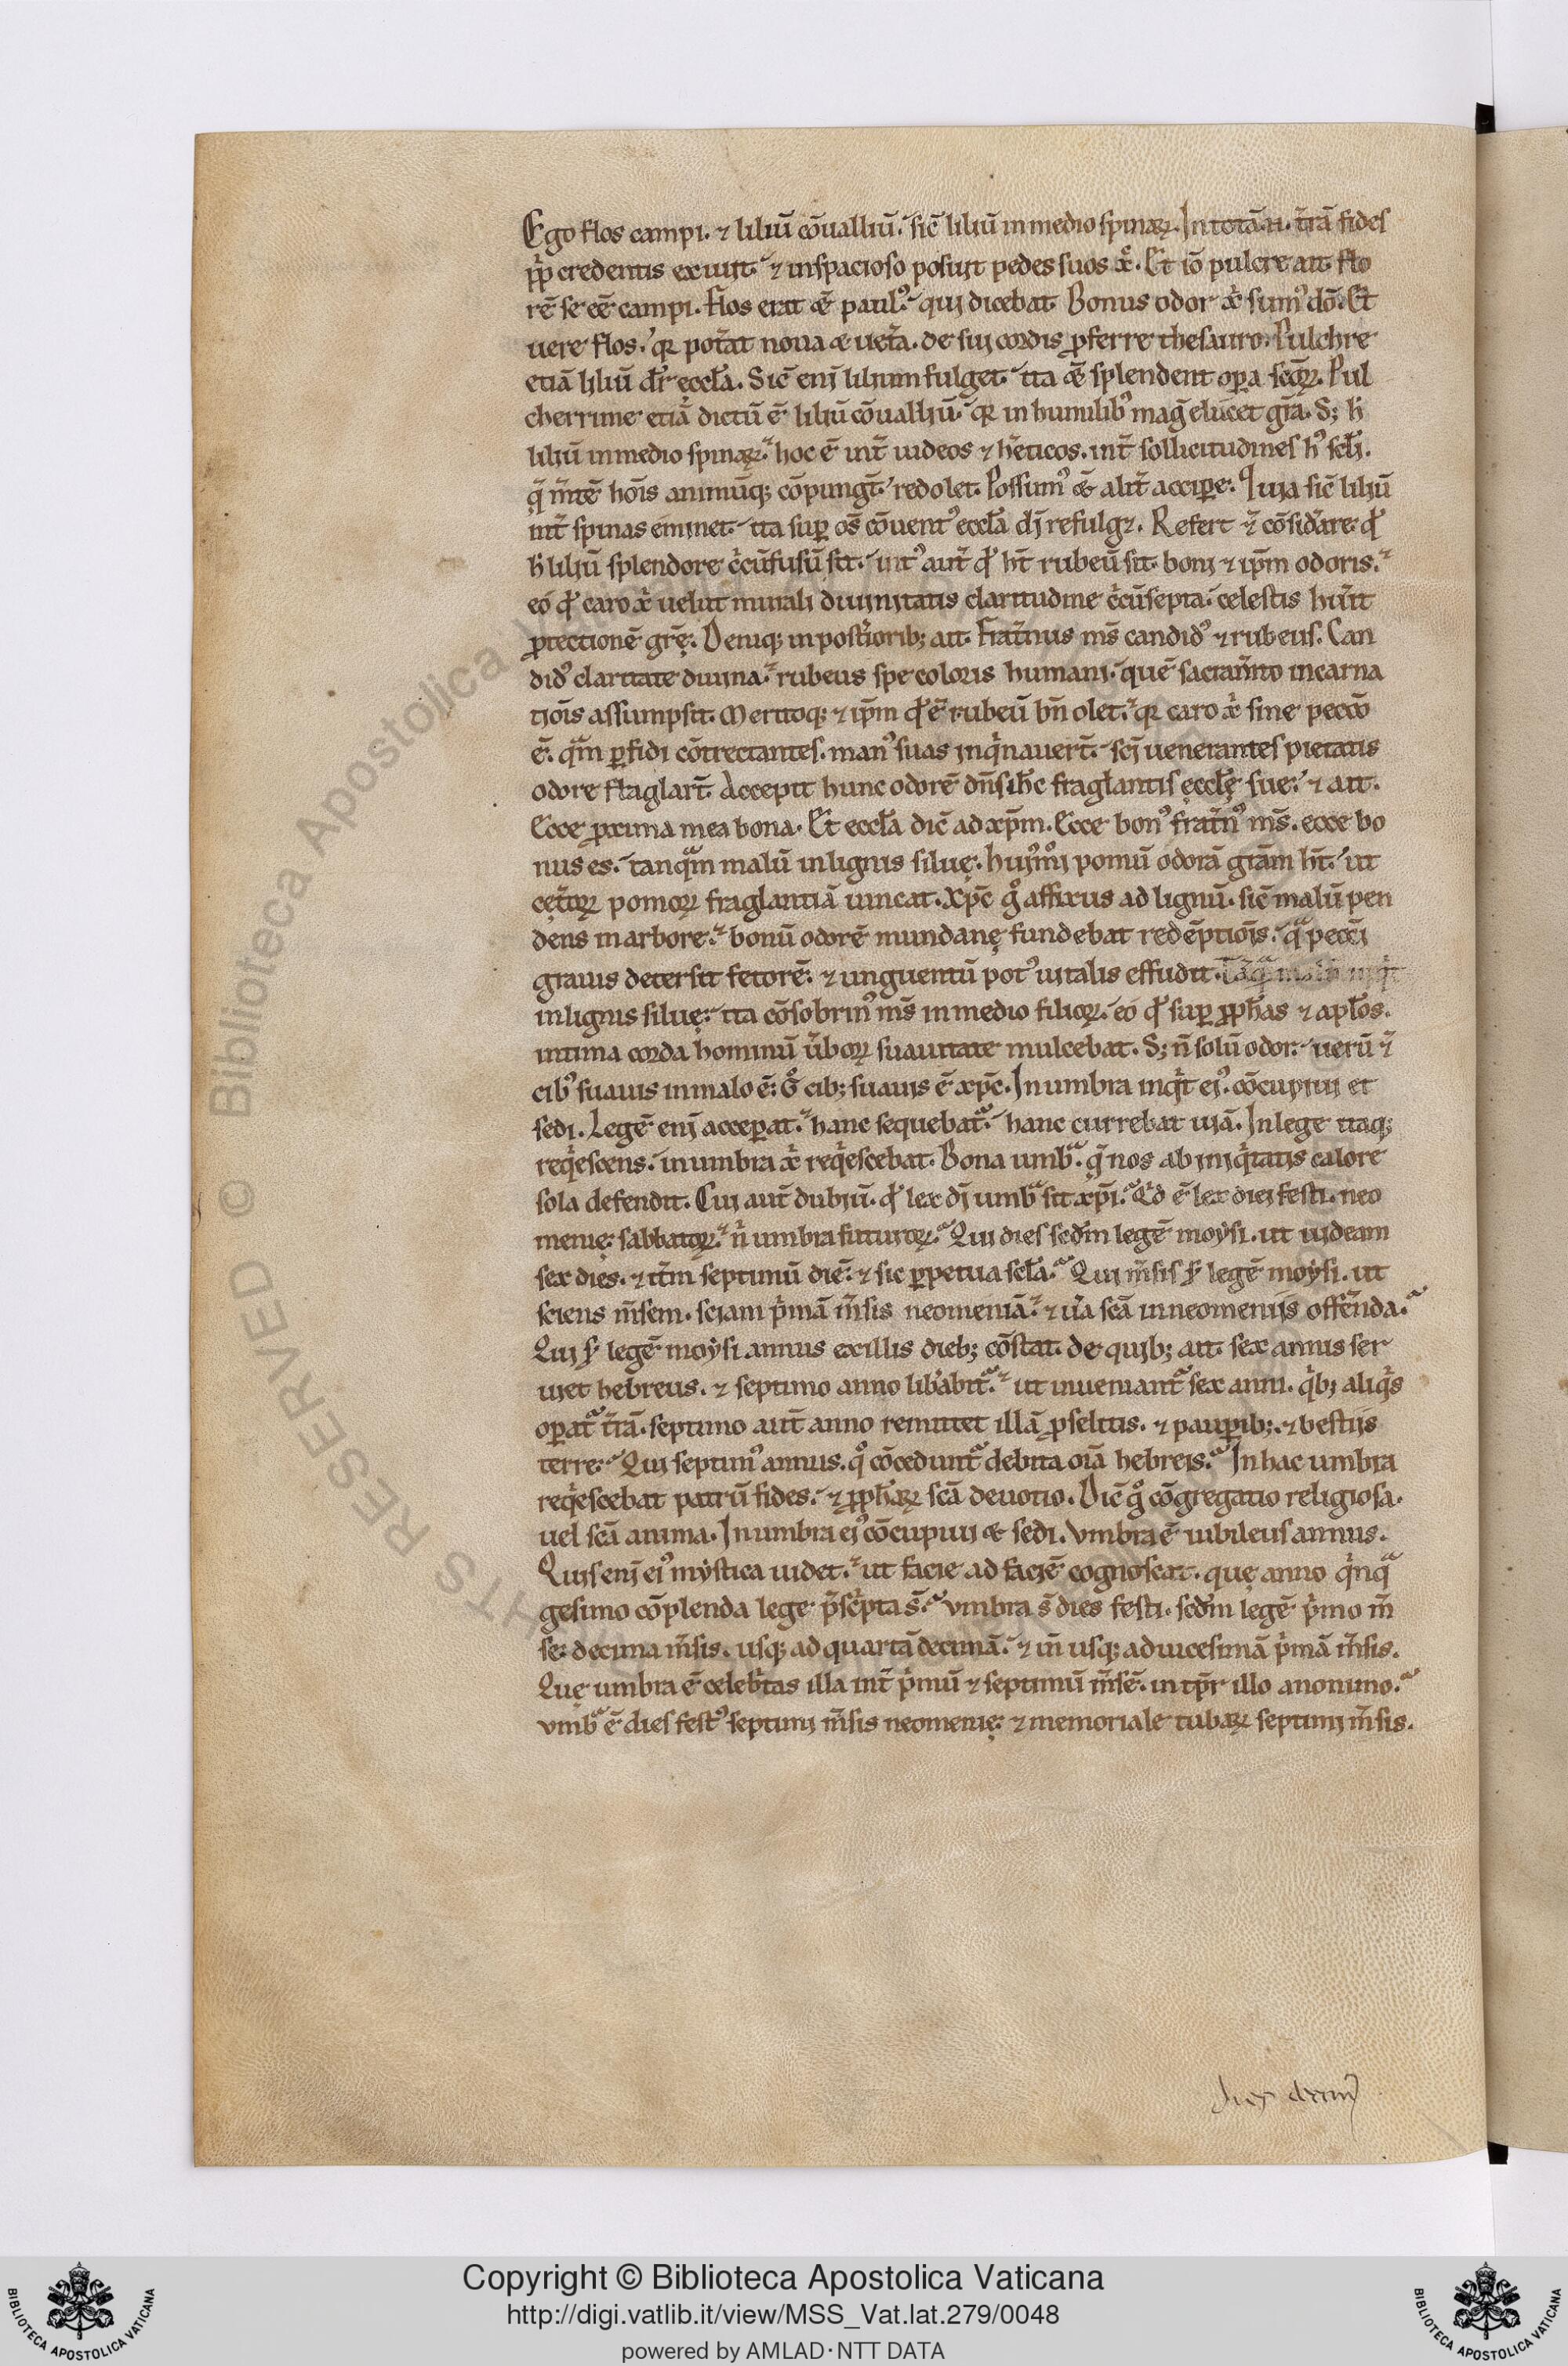 Ego flos campi. ⁊ liliū cōualliū. sic̄ liliū in medio spinaꝝ. In totā.n. t̄rā fides
ꝓp̄ credentis exiuit. ⁊ in spacioso posuit pedes suos xͦ. Et iō pulcre ait flo
rē se eē campi. Flos erat & paulꝰ. qui dicebat. Bonus odor xp̄i sumꝰ dō. Et
uere flos. qꝛ pot̄at noua & uet̄a. de sui cordis ꝓferre thesauro. Pulchre
etiā liliū dr̄ eccl̄a. Sic̄ eni lilium fulget. ita & splendent oꝑa sc̄oꝝ. Pul
cherrime etiā dictū ē liliū cōualliū. qꝛ in humilibꝰ maḡ elucet gr̄a. S; h̄
liliū in medio spinaꝝ. hoc ē int̄ iudeos ⁊ h̄eticos. int̄ sollicitudines hꝰ scl̄i.
q̄ m̄tē hoīs animūq; cōpungt̄. redolet. Possumꝰ & alit̄ acciꝑe. Quia sic̄ liliū
int̄ spinas eminet. ita suꝑ os̄ cōuentꝰ eccl̄a di refulg⁊. Refert ⁊ cōsid̄are. qꝺ
h̄ liliū splendore c̄cūfusū sit. intꝰ aut̄ qꝺ h̄t rubeū sit. boni ⁊ ip̄m odoris.
eo qꝺ caro xp̄i uelut murali diuinitatis claritudine c̄cūsepta. celestis hūit
ꝓtectionē gr̄ę. Deniq; in post̄iorib; ait. Frat̄nus ms̄ candidꝰ ⁊ rubeus. Can
didꝰ claritate diuina. rubeus spe coloris humani. quē sacram̄to incarna
tiois assumpsit. Meritoq; ⁊ ip̄m qꝺ ē rubeū bn̄ olet. qꝛ caro xp̄i sine pecc̄o
ē. quam ꝑfidi cōtrectantes. manꝰ suas inqⁱnauert̄. sci uenerantes pietatis
odore flaglart̄. Accepit hunc odorē dn̄s ih̄c fraglantis ęccl̄ę suę. ⁊ ait.
Ecce ꝓxima mea bona. Et eccl̄a dic̄ ad xp̄m. Ecce bonꝰ frat̄nꝰ ms̄. ecce bo
nus es. tanqᵃm malū in lignis siluę. huiꝰmōi pomū odorā gr̄am h̄t. ut
cęt̄oꝝ pomoꝝ fraglantiā uincat. Xp̄c gͦ affixus ad lignū. sic̄ malū pen
dens in arbore. bonū odorē mundanę fundebat redēptiois. qᵃ pecc̄i
grauis detersit fetorē. ⁊ unguentū potꝰ uitalis effudit. Tāqᵃ malū inqⁱt
in lignis siluę. ita cōsobrinꝰ ms̄ in medio filioꝝ. eo qꝺ suꝑ ꝓph̄as ⁊ apl̄os.
intima corda hominū ūboꝝ suauitate mulcebat. S; n̄ solū odor. uerū ⁊
cibꝰ suauis in malo ē. gͦ cib; suauis ē xp̄c. In umbra inqⁱt eiꝰ. cōcupiui et
sedi. Legē eni acceꝑat. hanc sequebatᵃ. hanc currebat uiā. In lege itaq;
reqⁱescens. in umbra xp̄i reqⁱescebat. Bona umbᵃ. q̄ nos ab iniqⁱtatis calore
sola defendit. Cui aut̄ dubiū. qꝺ lex di umbᵃ sit xp̄i. Qⁱd ē lex diei festi. neo
menię. sabbatoꝝ. nⁱ umbra futuroꝝ. Qui dies scd̄m legē moysi. ut uideam
sex dies. ⁊ it̄m septimū diē. ⁊ sic ꝑpetua scl̄a. Qui m̄sis s̄ legē moysi. ut
sciens m̄sem. sciam pⁱmā m̄sis neomeniā. ⁊ ūa scā in neomeniis offērnda.
Qui s̄ legē moysi annus ex illis dieb; cōstat. de quib; ait. sex annis ser
uiet hebreus. ⁊ septimo anno lib̄abitᵃ. ut inueniantᵃ sex anni. qⁱb; aliqⁱs
oꝑatᵃ t̄rā. septimo aut̄ anno remittet illā ꝓselitis. ⁊ pauꝑib;. ⁊ bestiis
terre. Qui septimꝰ annus. qͦ cōceduntᵃ debita oīa hebreis. In hac umbra
reqⁱescebat patrū fides. ⁊ ꝓph̄aꝝ scā deuotio. Dic̄ gͦ cōgregatio religiosa.
uel scā anima. In umbra eiꝰ cōcupiui & sedi. Vmbra ē iubileus annus.
Quis eni eiꝰ mystica uidet. ut facie ad faciē cognoscat. quę anno qⁱnqᵃ
gesimo cōplenda lege p̄scⁱpta s̄. Vmbra s̄ dies festi. scd̄m legē pⁱmo m̄
se. decima m̄sis. usq; ad quartā decimā. ⁊ in̄ usq; ad uicesimā pⁱmā m̄sis.
Quę umbra ē celebⁱtas illa int̄ pⁱmū ⁊ septimū m̄sē. in tp̄r illo anonimo.
vmbᵃ ē dies festꝰ septimi m̄sis neomenię. ⁊ memoriale tubaꝝ septimi m̄sis.
dies decimꝰ
BIBLIOTECA APOSTOLICA VATICANA
Copyright © Biblioteca Apostolica Vaticana
http://digi.vatlib.it/view/MSS_Vat.lat.279/0048
powered by AMLAD·NTT DATA
BIBLIOTECA APOSTOLICA VATICANA